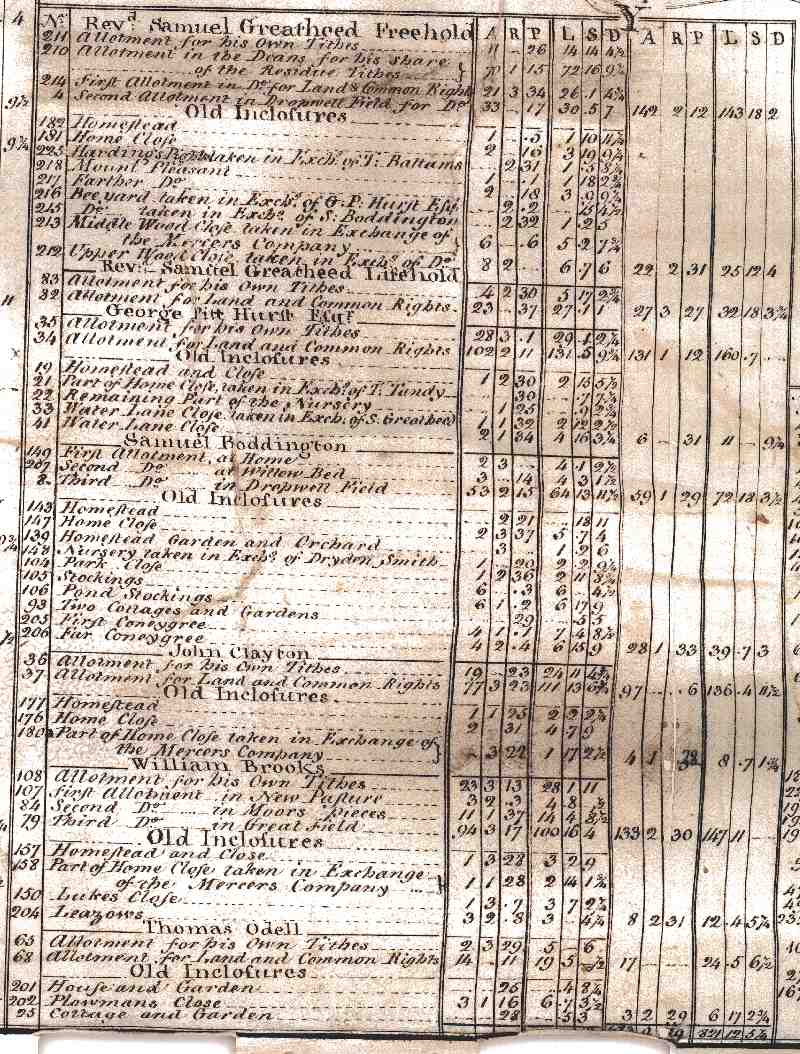 No. Rev.d Samuel Greatheed Freehold A R P L S D A R P L S D
211 Allotment for his Own Tithes 11 - 26 14 14 4½
210 Allotment in the Deans for his Share
of the Residue Tithes 70 1 15 72 16 9¾
214 First Allotment in Do. for Land & Common Right 21 3 34 26 1 4¾
4 Second Allotment in Dropwell Field for Do. 33 - 17 30 5 7 142 2 12 143 18 2
Old Inclosures
182 Homestead
181 Home Close 1 - 5 1 10 11¼
225 Hardings taken in Exch. of T. Battams 2 - 16 3 19 9¼
218 Mount Pleasant 2 31 1 5 8¼
217 Farther Do. 1 - 1 1 18 2¾
216 Bee yard taken in Exch. of G. P. Hurst Esq. 2 - 18 3 9 9¾
215 Do. taken in Exch. of S. Boddington 2 2 - 15 4½
213 Middle Wood Close taken in Exchange of 2 32 1 2 5
the Mercers Company 6 - 6 5 2 7¾
212 Upper Wood Close, taken in Exch. of Do. 8 2 6 7 6 22 2 31 25 12 4
Rev.d Samuel Greatheed Lifehold
83 Allotment for his Own Tithes 4 2 30 5 17 2¾
82 Allotment for Land and Common Rights 23 - 37 27 1 1 27 3 27 32 18 3¾
George Pitt Hurst Esqr.
35 Allotment for his Own Tithes 28 3 1 29 1 2¾
34 Allotment for Land and Common Rights 102 2 11 131 5 9¾ 131 1 12 160 7
Old Inclosures
19 Homestead and Close
21 Part of Home Close, taken in Exch. of T. Tandy 1 2 30 2 15 5½
22 Remaining Part of the Nursery 30 7 7¾
33 Water Lane Close, taken in Exch. of S. Greatheed 1 25 9 2¾
41 Water Lane Close 1 1 32 2 12 2½
2 1 34 4 16 3¾ 6 - 31 11 - 9¼
Samuel Boddington
149 First Allotment, at Home
207 Second Do. at Willow Bed 2 3 4 1 2½
8 Third Do. in Dropwell Field 3 - 14 4 3 1½
53 2 15 64 13 11¾ 59 1 29 72 18 3½
Old Inclosures
143 Homestead
147 Home Close 2 21 18 11
139 Homestead Garden and Orchard 2 3 37 5 7 4
148 Nursery taken in Exch. of Dryden Smith 3 1 2 6
104 Park Close 1 - 29 2 2 9¼
103 Stockings 1 2 36 2 11 8¾
106 Pond Stockings 6 - 3 6 - 4½
93 Two Cottages and Gardens 6 1 2 6 17 9
205 First Coneygree 29 5 5
206 Far Coneygree 4 1 1 7 4 8½
4 2 4 6 15 9 28 1 33 39 7 3
John Clayton
36 Allotment for his Own Tithes
37 Allotment for Land and Common Rights 19 - 23 24 11 4¾
77 3 23 111 13 6¾ 97 - 6 136 4 11½
Old Inclosures
177 Homestead
176 Home Close 1 1 25 2 2 2¾
180 Part of Home Close taken in Exchange of 2 - 31 4 7 9
the Mercers Company 3 22 1 17 2½ 4 1 8 7 1¾
William Brooks
108 Allotment for his Own Tithes
107 First Allotment in New Pasture 23 3 13 28 1 11
84 Second Do. in Moors pieces 3 2 3 4 8
79 Third Do. in Great Field 11 1 37 14 4 8½
94 3 17 100 16 4 133 2 30 147 11
Old Inclosures
157 Homestead and Close
158 Part of Home Close, taken in Exchange 1 3 28 3 2 9
of the Mercers Company 1 1 28 2 14 1¾
150 Lukes Close
204 Leazows 1 3 7 3 7 2¾
3 2 8 3 - 4¼ 8 2 31 12 4 5¼
Thomas Odell
65 Allotment for his Own Tithes
68 Allotment for Land and Common Rights 2 3 29 5 - 6
14 - 11 19 5 17 24 5 6½
Old Inclosures
201 House and Garden
202 Plowmans Close 25 4 8¼
25 Cottage and Garden 3 1 16 6 7 3½
28 5 3 3 2 29 6 17 2¾
19 821 12 5¼